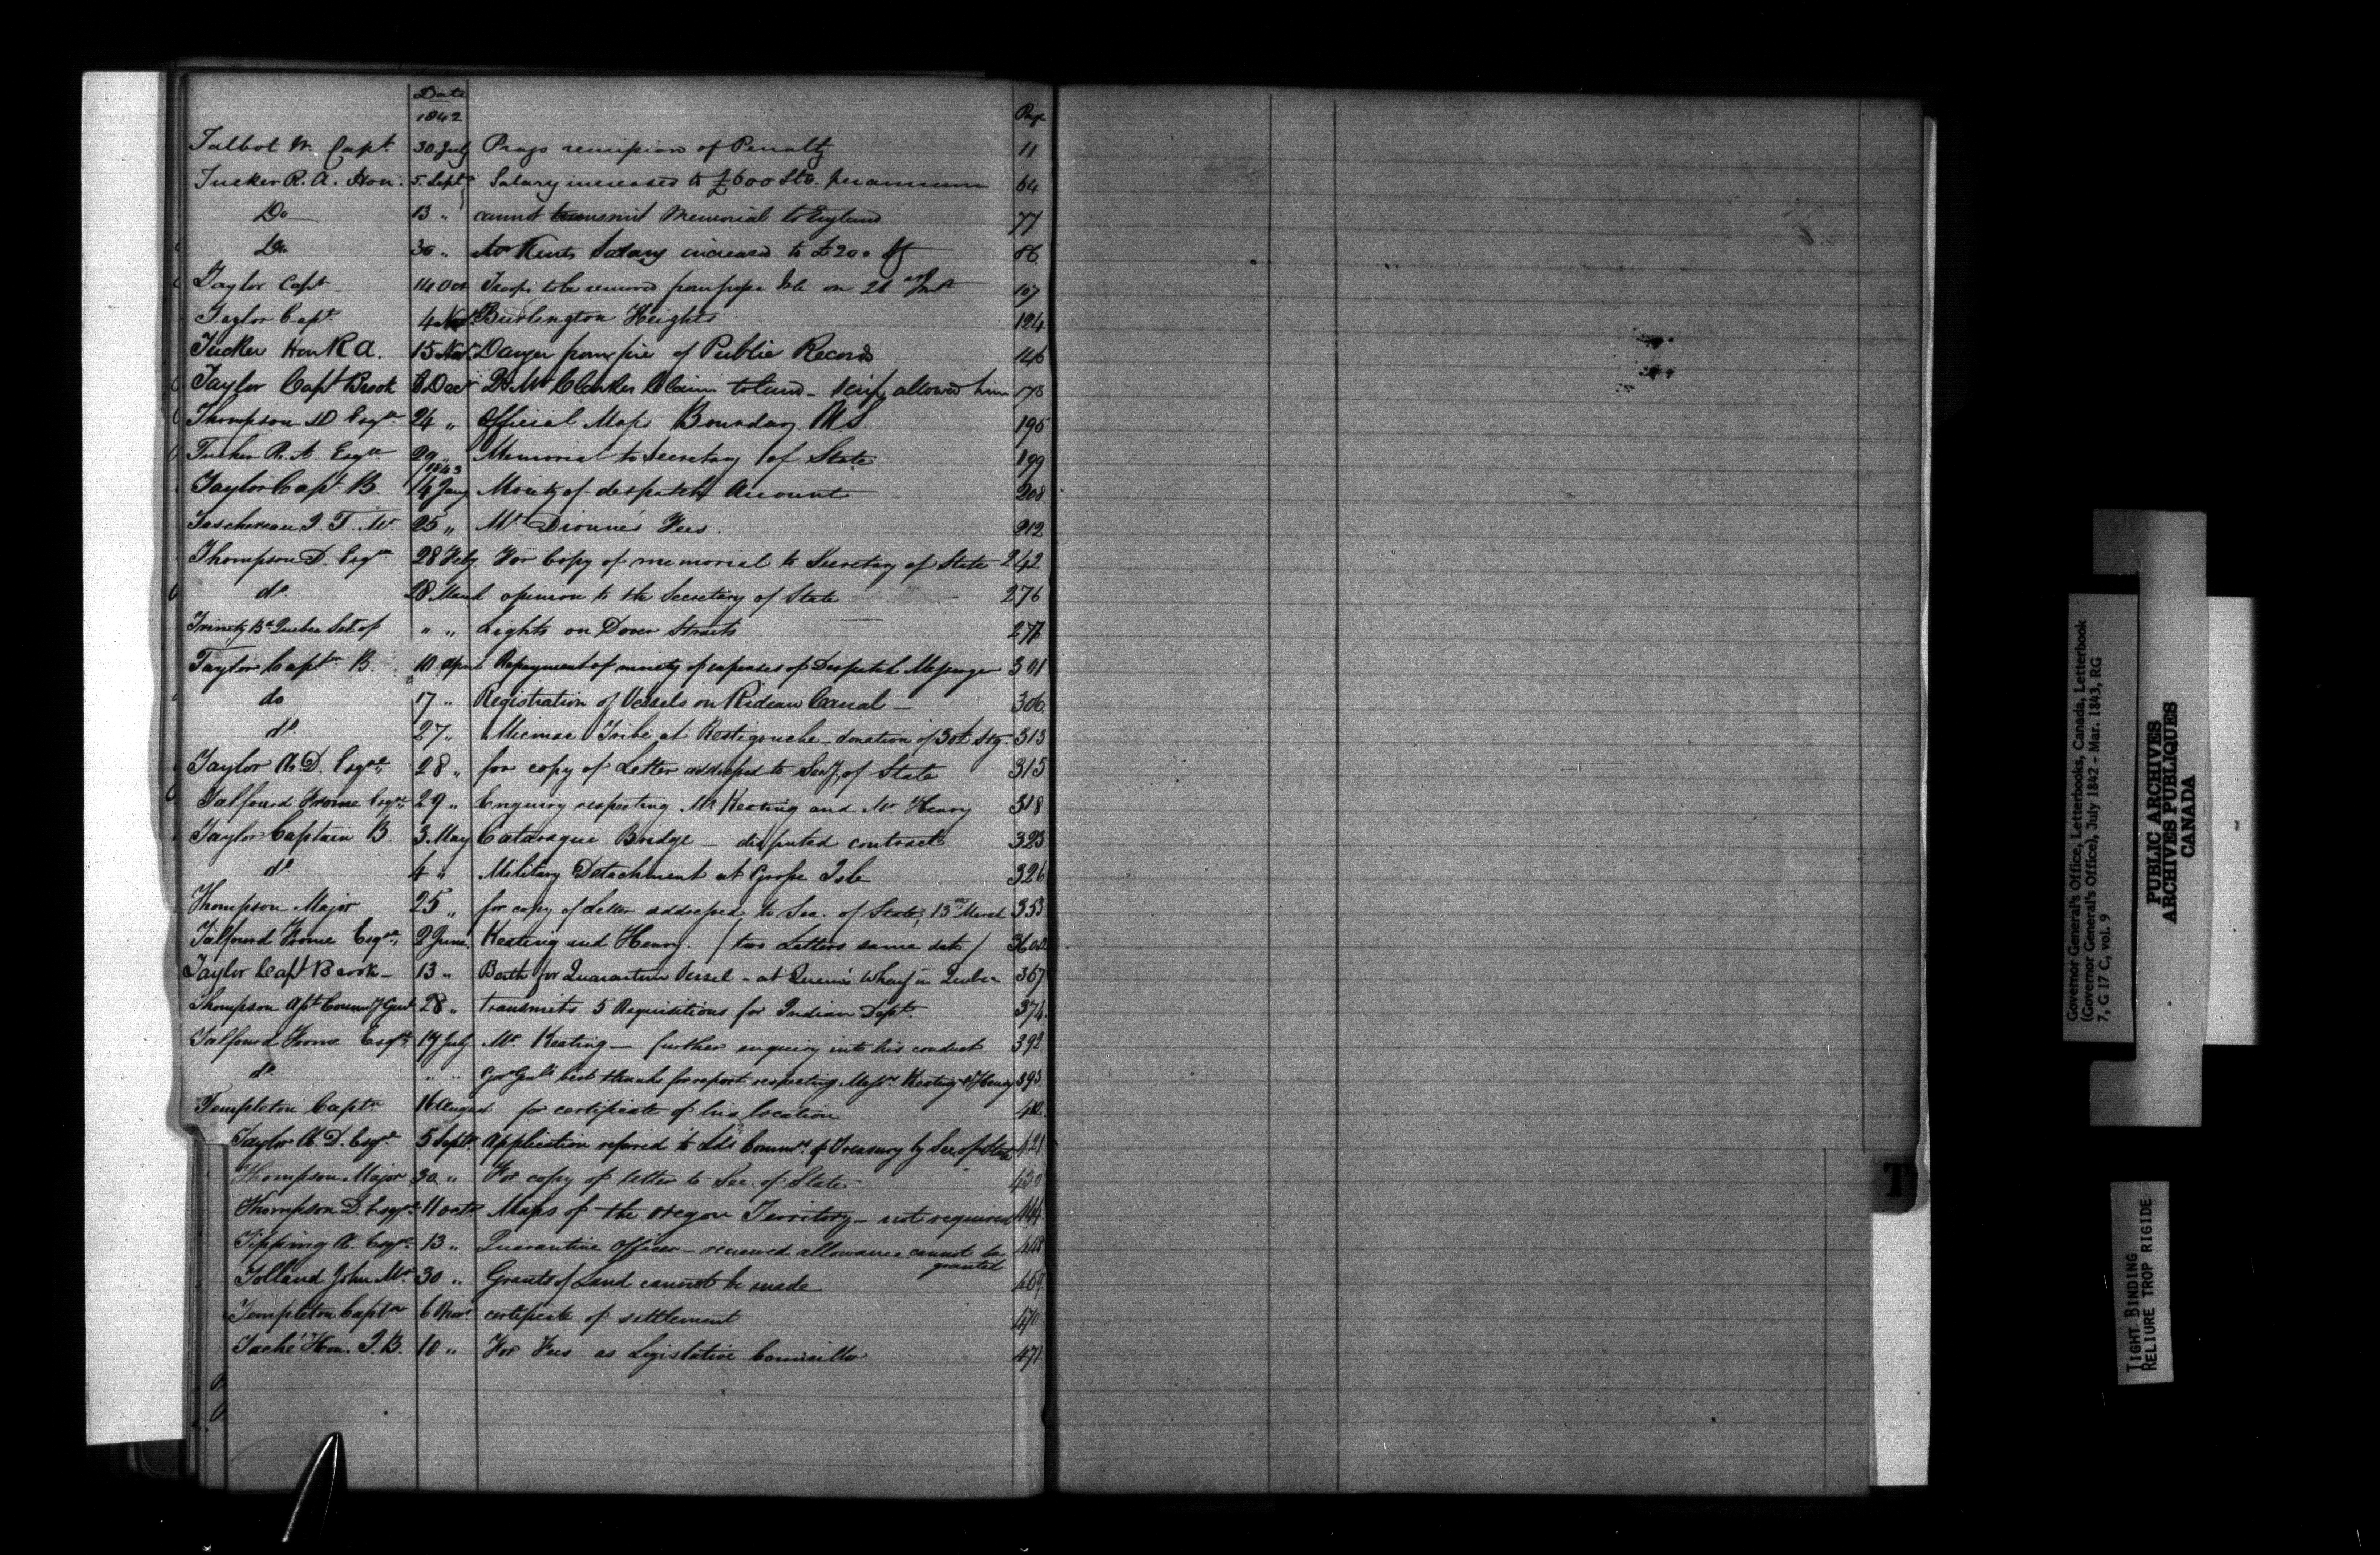 Date
1842
Page
Talbot W. Capt. 30 July Prays remission of Penalty 11
Tucker R. A. Hon. 5. Septr Salary increased to £600 Stg. per annum 64
Do 13 " cannot transmit Memorial to England 77
Do 30 " Mr Kents Salary increased to £200 86
Taylor Capt. 14 Oct Troops to be removed from Grosse Isle on 21 Inst 107
Taylor Capt. 4 Nov. Burlington Heights 124
Tucker Hon R A. 15 Nov. Danger from fire of Public Records 146
Taylor Capt Brook 8 Decr Clarkes Claim to Land - scrip allowed him 173
Thompson D Esqre 24 " Official Maps Boundary 195
Tucker R. A. Esqre 29 " Memorial to Secretary of State 199
1843
Taylor Capt. B. 14 Jany Moiety of despatch Account 208
Taschereau J. T. Mr. 25 " Mr. Dionne's Fees. 212
Thompson D. Esqre 28 Feby. For Copy of memorial to Secretary of State 242
do. 28 March opinion to the Secretary of State 276
Trinity Bd Quebec Sec. of " " Lights on Dover Straits 277
Taylor Captn B. 10 April Repayment of moiety of expenses of Despatch Messenger 301
do 17 " Registration of Vessels on Rideau Canal - 306.
do. 27 " Micmac Tribe at Restigouche - donation of 30£ Stg. 313
Taylor A. D. Esqre 28 " for copy of Letter addressed to Secy. of State 315
Talfourd Frome Esqre 29 " Enquiry respecting Mr Keating and Mr. Henry 318
Taylor Captain B. 3. May Cataraqui Bridge - disputed contract 323
do. 4 " Military Detachment at Grosse Isle 326
Thompson Major 25 " for copy of Letter addressed to Sec. of State, 13th March 353
Talfourd Frome Esqre 2 June. Keating and Henry. / two Letters same date /
Taylor Capt Brook - 13 " Berth for Quarantine Vessel - at Queen's Wharf in Quebec 367
Thompson Ast. Commy Genl 28 " transmits 5 Requisitions for Indian Dept. 374.
Talfourd Frome Esqre 19 July. Mr. Keating - further enquiry into his conduct 392.
do. " " Govr Genls best thanks for report respecting Messrs Keating & Henry 393.
Templeton Captn. 16 August for certificate of his location 412.
Taylor A. D. Esqre 5 Septr. Application refered to Lds Commrs. of Treasury by Sec. of State 421
Thompson Major 30 " For copy of letter to Sec. of State 430
Thompson D. Esqre. 11 Octr. Maps of the Oregon Territory - not required 444
Tipping A. Esqre. 13 " Quarantine Officer - renewed allowance cannot be granted 448
Tolland John Mr. 30 " Grants of Land cannot be made 459
Templeton Captn 6 Novr. certificate of settlement 470
Taché Hon. J. B. 10 " For Fees as Legislative Councillor 471
T
Governor General's Office, Letterbooks, Canada, Letterbook
(Governor General's Office), July 1842 - Mar. 1843, RG
7, G 17 C, vol. 9
PUBLIC ARCHIVES
ARCHIVES PUBLIQUES
CANADA
TIGHT BINDING
RELIURE TROP RIGIDE